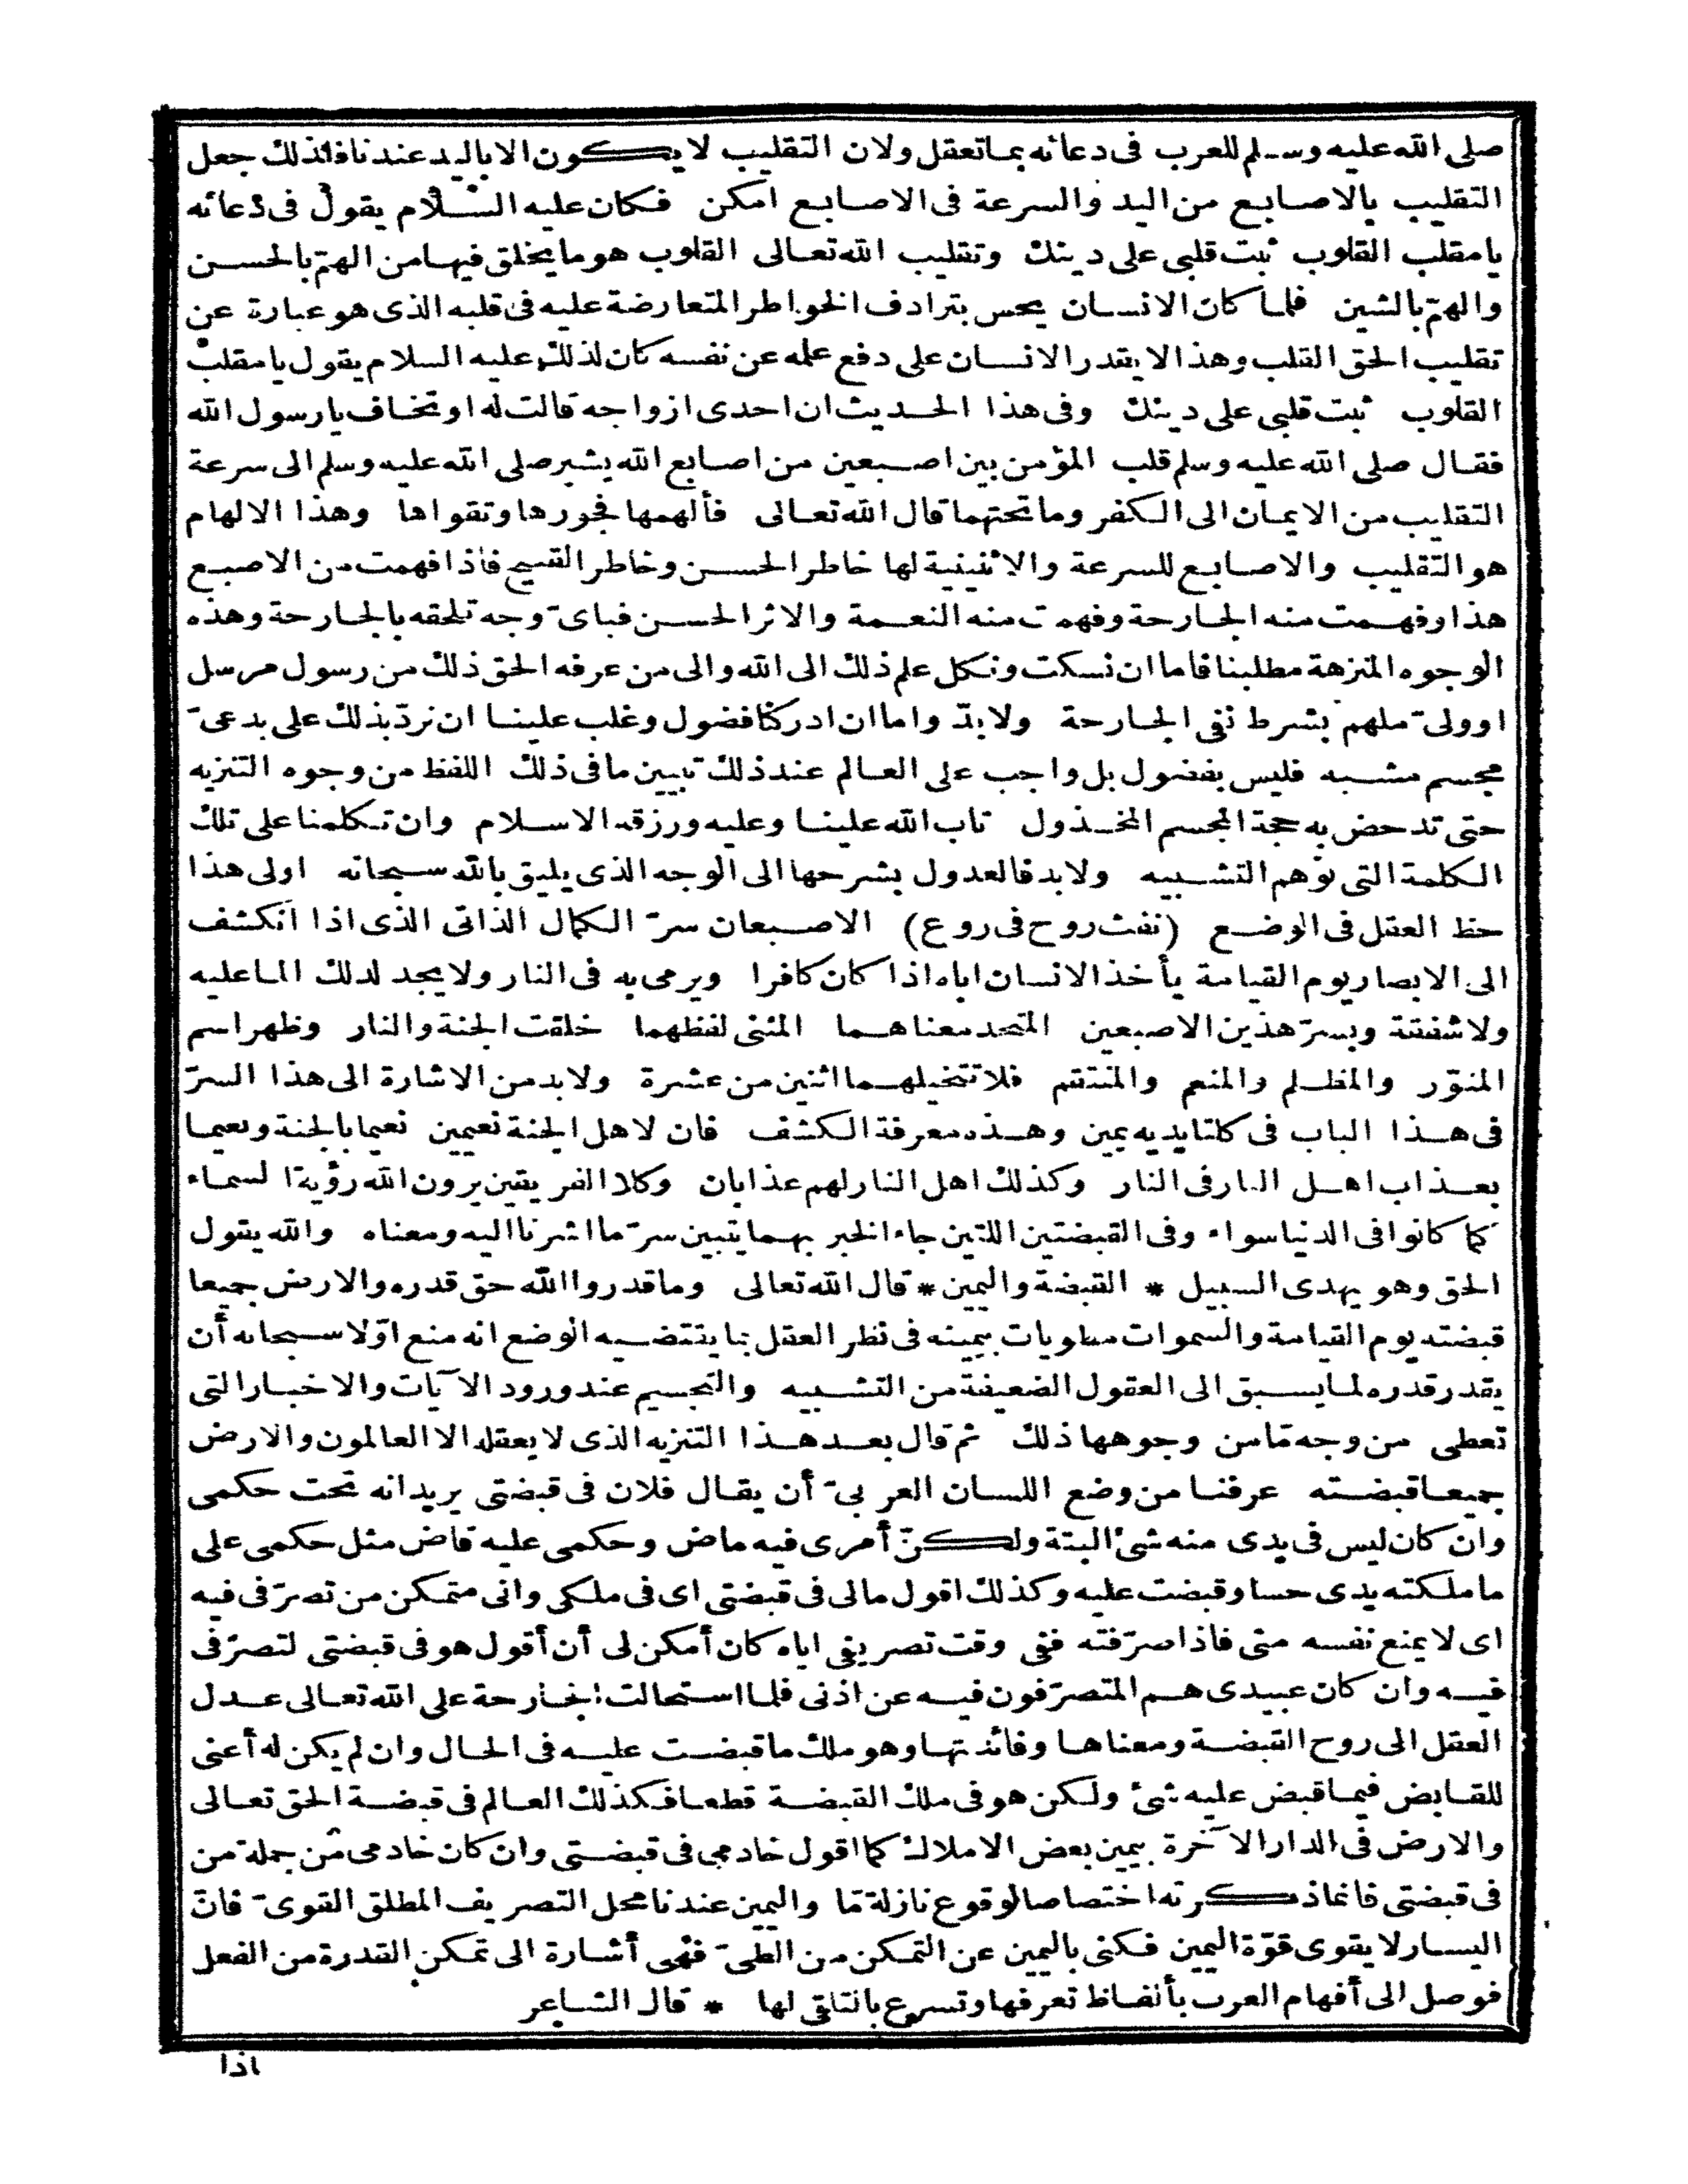 صلى الله عليه وسلم للعرب فى دعائه بما تعقل ولان التقليب لا يكون الا باليد عندنا فلذلك جعل
التقليب بالاصابع من اليد والسرعة فى الاصابع امكن فكان عليه السلام يقول فى دعائه
يا مقلب القلوب ثبت قلبى على دينك وتقليب الله تعالى القلوب هو ما يخلق فيها من الهمّ بالحسن
والهمّ بالشين فلما كان الانسان يحس بترادف الخواطر المتعارضة عليه فى قلبه الذى هو عبارة عن
تقليب الحق القلب وهذا لا يقدر الانسان على دفع علمه عن نفسه كان لذلك عليه السلام يقول يا مقلب
القلوب ثبت قلبى على دينك وفى هذا الحديث ان احدى ازواجه قالت له او تخاف يا رسول الله
فقال صلى الله عليه وسلم قلب المؤمن بين اصبعين من اصابع الله يشير صلى الله عليه وسلم الى سرعة
التقليب من الايمان الى الكفر وما تحتهما قال الله تعالى فألهمها فجورها وتقواها وهذا الالهام
هو التقليب والاصابع للسرعة والاثنينية لها خاطر الحسن وخاطر القبيح فاذا فهمت من الاصبع
هذا وفهمت منه الجارحة وفهمت منه النعمة والاثر الحسن فباىّ وجه تلحقه بالجارحة وهذه
الوجوه المنزهة مطلبنا فاما ان نسكت ونكل علم ذلك الى الله والى من عرفه الحق ذلك من رسول مرسل
او ولىّ ملهم بشرط نفى الجارحة ولابدّ واما ان ادركنا فضول وغلب علينا ان نردّ بذلك على بدعىّ
مجسم مشبه فليس بفضول بل واجب على العالم عند ذلك تبيين ما فى ذلك اللفظ من وجوه التنزيه
حتى تدحض به حجة المجسم المخذول تاب الله علينا وعليه ورزقه الاسلام وان تكلمنا على تلك
الكلمة التى توهم التشبيه ولابد فالعدول بشرحها الى الوجه الذى يليق بالله سبحانه اولى هذا
حظ العقل فى الوضع (نفث روح فى روع) الاصبعان سرّ الكمال الذاتى الذى اذا انكشف
الى الابصار يوم القيامة يأخذ الانسان اباه اذا كان كافرا ويرمى به فى النار ولا يجد لذلك الما عليه
ولا شفقة وبسرّ هذين الاصبعين المتحد معناهما المثنى لفظهما خلقت الجنة والنار وظهر اسم
المنوّر والمظلم والمنعم والمنتقم فلا تتخيلهما اثنين من عشرة ولابد من الاشارة الى هذا السرّ
فى هذا الباب فى كلتا يديه يمين وهذه معرفة الكشف فان لاهل الجنة نعيمين نعيما بالجنة ونعيما
بعذاب اهل النار فى النار وكذلك اهل النار لهم عذابان وكلا الفريقين يرون الله رؤية الاسماء
كما كانوا فى الدنيا سواء وفى القبضتين اللتين جاء الخبر بهما يتبين سرّ ما اشرنا اليه ومعناه والله يقول
الحق وهو يهدى السبيل * القبضة واليمين * قال الله تعالى وما قدروا الله حق قدره والارض جميعا
قبضته يوم القيامة والسموات مطويات بيمينه فى نظر العقل بما يقتضيه الوضع انه منع اوّلا سبحانه أن
يقدر قدره لما يسبق الى العقول الضعيفة من التشبيه والتجسيم عند ورود الآيات والاخبار التى
تعطى من وجه مّا من وجوهها ذلك ثم قال بعد هذا التنزيه الذى لا يعقله الا العالمون والارض
جميعا قبضته عرفنا من وضع اللسان العربىّ أن يقال فلان فى قبضتى يريد انه تحت حكمى
وان كان ليس فى يدى منه شئ البتة ولكنّ أمرى فيه ماض وحكمى عليه قاض مثل حكمى على
ما ملكته يدى حسا وقبضت عليه وكذلك اقول مالى فى قبضتى اى فى ملكى وانى متمكن من تصرّفى فيه
اى لا يمنع نفسه منى فاذا صرّفته ففى وقت تصريفى اياه كان أمكن لى أن أقول هو فى قبضتى لتصرّفى
فيه وان كان عبيدى هم المتصرّفون فيه عن اذنى فلما استحالت الجارحة على الله تعالى عدل
العقل الى روح القبضة ومعناها وفائدتها وهو ملك ما قبضت عليه فى الحال وان لم يكن له أعنى
للقابض فيما قبض عليه شئ ولكن هو فى ملك القبضة قطعا فكذلك العالم فى قبضة الحق تعالى
والارض فى الدار الآخرة بيمين بعض الاملاك كما اقول خادمى فى قبضتى وان كان خادمى من جملة من
فى قبضتى فانما ذكرته اختصاصا لوقوع نازلة مّا واليمين عندنا محل التصريف المطلق القوىّ فانّ
اليسار لا يقوى قوّة اليمين فكنى باليمين عن التمكن من الطىّ فهى أشارة الى تمكن القدرة من الفعل
فوصل الى أفهام العرب بألفاظ تعرفها وتسرع بالتلقى لها * قال الشاعر
اذا